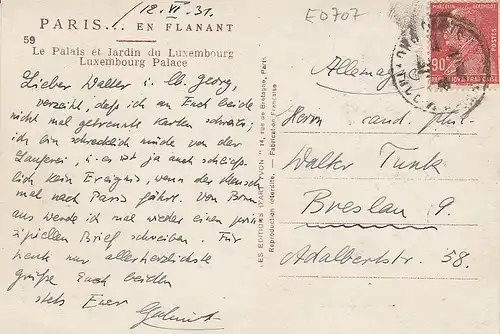 12. VI. 31.
E0707
PARIS... EN FLANANT
59
Le Palais et Jardin du Luxembourg
Luxembourg Palace
Lieber Walter i. lb. Georg,
verzeiht, daß ich an Euch beide
nicht mal getrennte Karten schreibe,
ich bin schrecklich müde von der
Lauferei, i. es ist ja auch schließ-
lich kein Ereignis, wenn der Mensch
mal nach Paris fährt. Von Bonn
aus werde ich mal wieder einen prin-
zipiellen Brief schreiben. Für
heute nur allerherzlichste
grüße Euch beiden
stets Euer
LES EDITIONS D'ART "YVON" 14, rue de Bretagne, Paris
Reproduction interdite. - Fabrication Française
MARCELIN BERTHELOT
90c
POSTES
REPUBLIQUE FRANÇAISE
Allemagne
Herrn cand. phil.
Walter Tunk
Breslau 9.
Adalbertstr. 58.